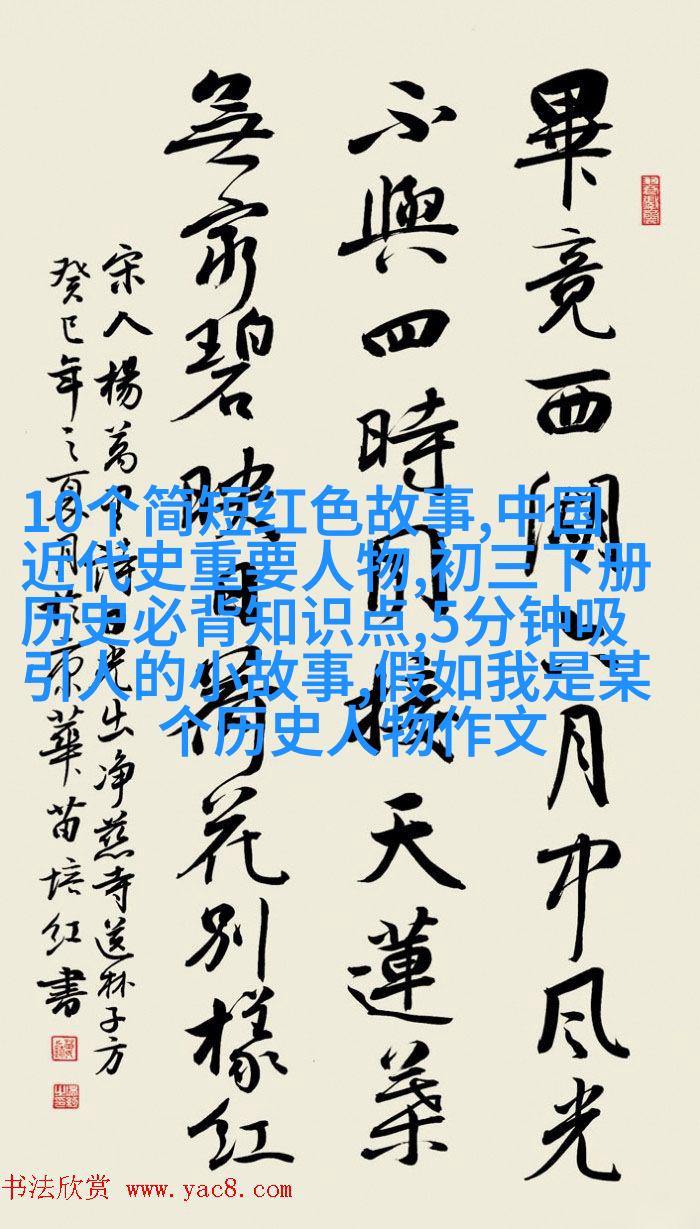 畢竟西湖六月中风光
不與四時同接天蓮葉
無窮碧映日荷花别樣红
宋人楊萬里詩曉出净慈寺送林子方
癸巳年之夏月於京華苗培红書
10个简短红色故事,中国
近代史重要人物,初三下册
历史必背知识点,5分钟吸
引人的小故事,假如我是某
个历史人物作文
书法欣赏 www.yac8.com